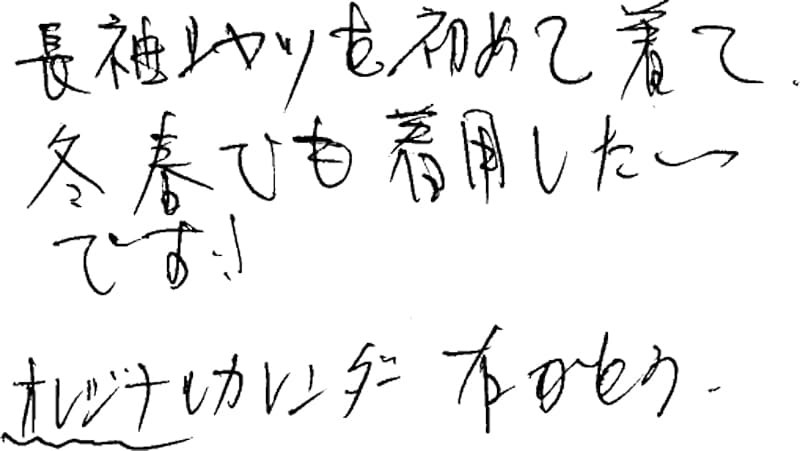 長袖シャツを初めて着て、
冬春でも着用したい
です!
オリジナルカレンダー 有がとう.